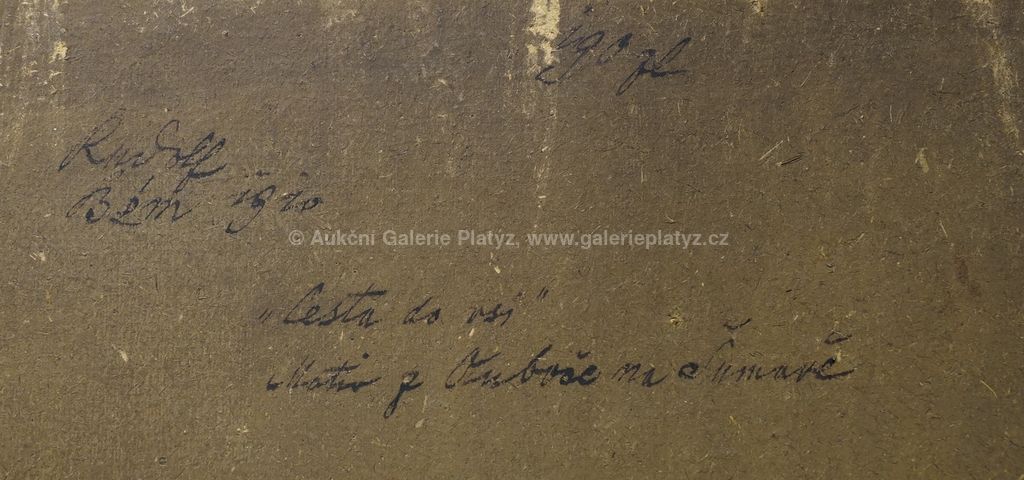 190 zl
Rudolf
Bém 1920
© Aukční Galerie Platýz, www.galerieplatyz.cz
„Cesta do vsi"
Motiv z Ouboče na Šumavě